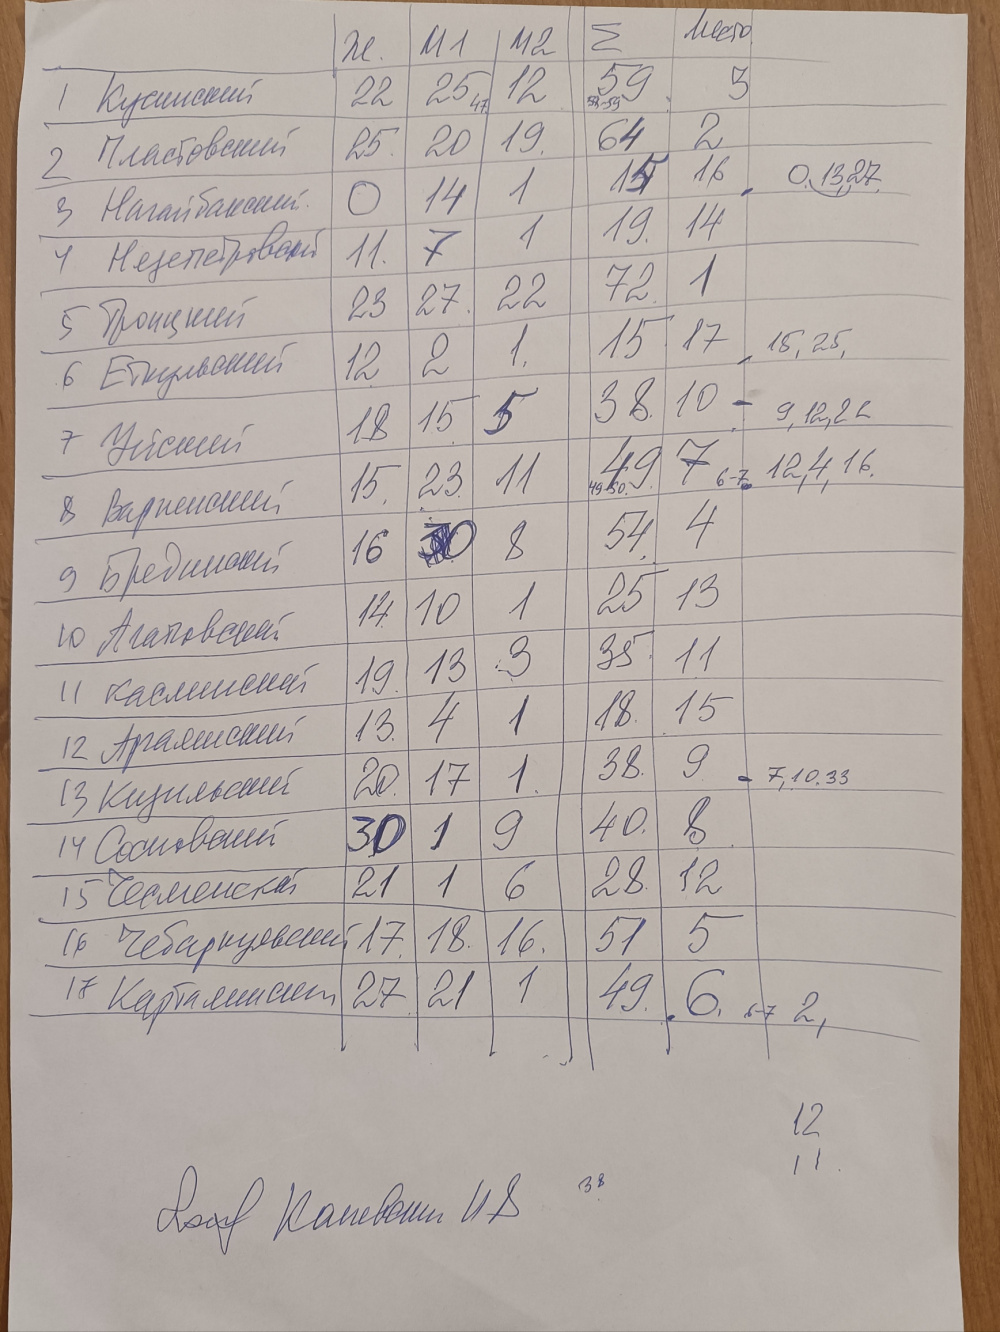 Ж. М1 М2 Σ Место
1 Кусинский 22 25 47 12 59 58-59 3
2 Пластовский 25. 20 19. 64 2
3 Нагайбакский 0 14 1 15 16 0, 13, 27.
4 Нязепетровский 11. 7 1 19. 14
5 Троицкий 23 27. 22 72. 1
6 Еткульский 12 2 1. 15 17 15, 25,
7 Уйский 18 15 5 38. 10 - 9, 12, 22
8 Варненский 15. 23. 11 49 49-50. 7 6-7 12, 4, 16.
9 Брединский 16 30 8 54. 4
10 Агаповский 14. 10 1 25 13
11 Каслинский 19. 13 3 35. 11
12 Аргаяшский 13. 4 1 18. 15
13 Кизильский 20. 17 1. 38. 9 - 7, 10. 33
14 Сосновский 30 1 9 40. 8
15 Чесменский 21 1 6 28. 12
16 Чебаркульский 17. 18. 16. 51 5
17 Карталинский 27. 21 1 49. 6. 6-7 2,
12
11.
38